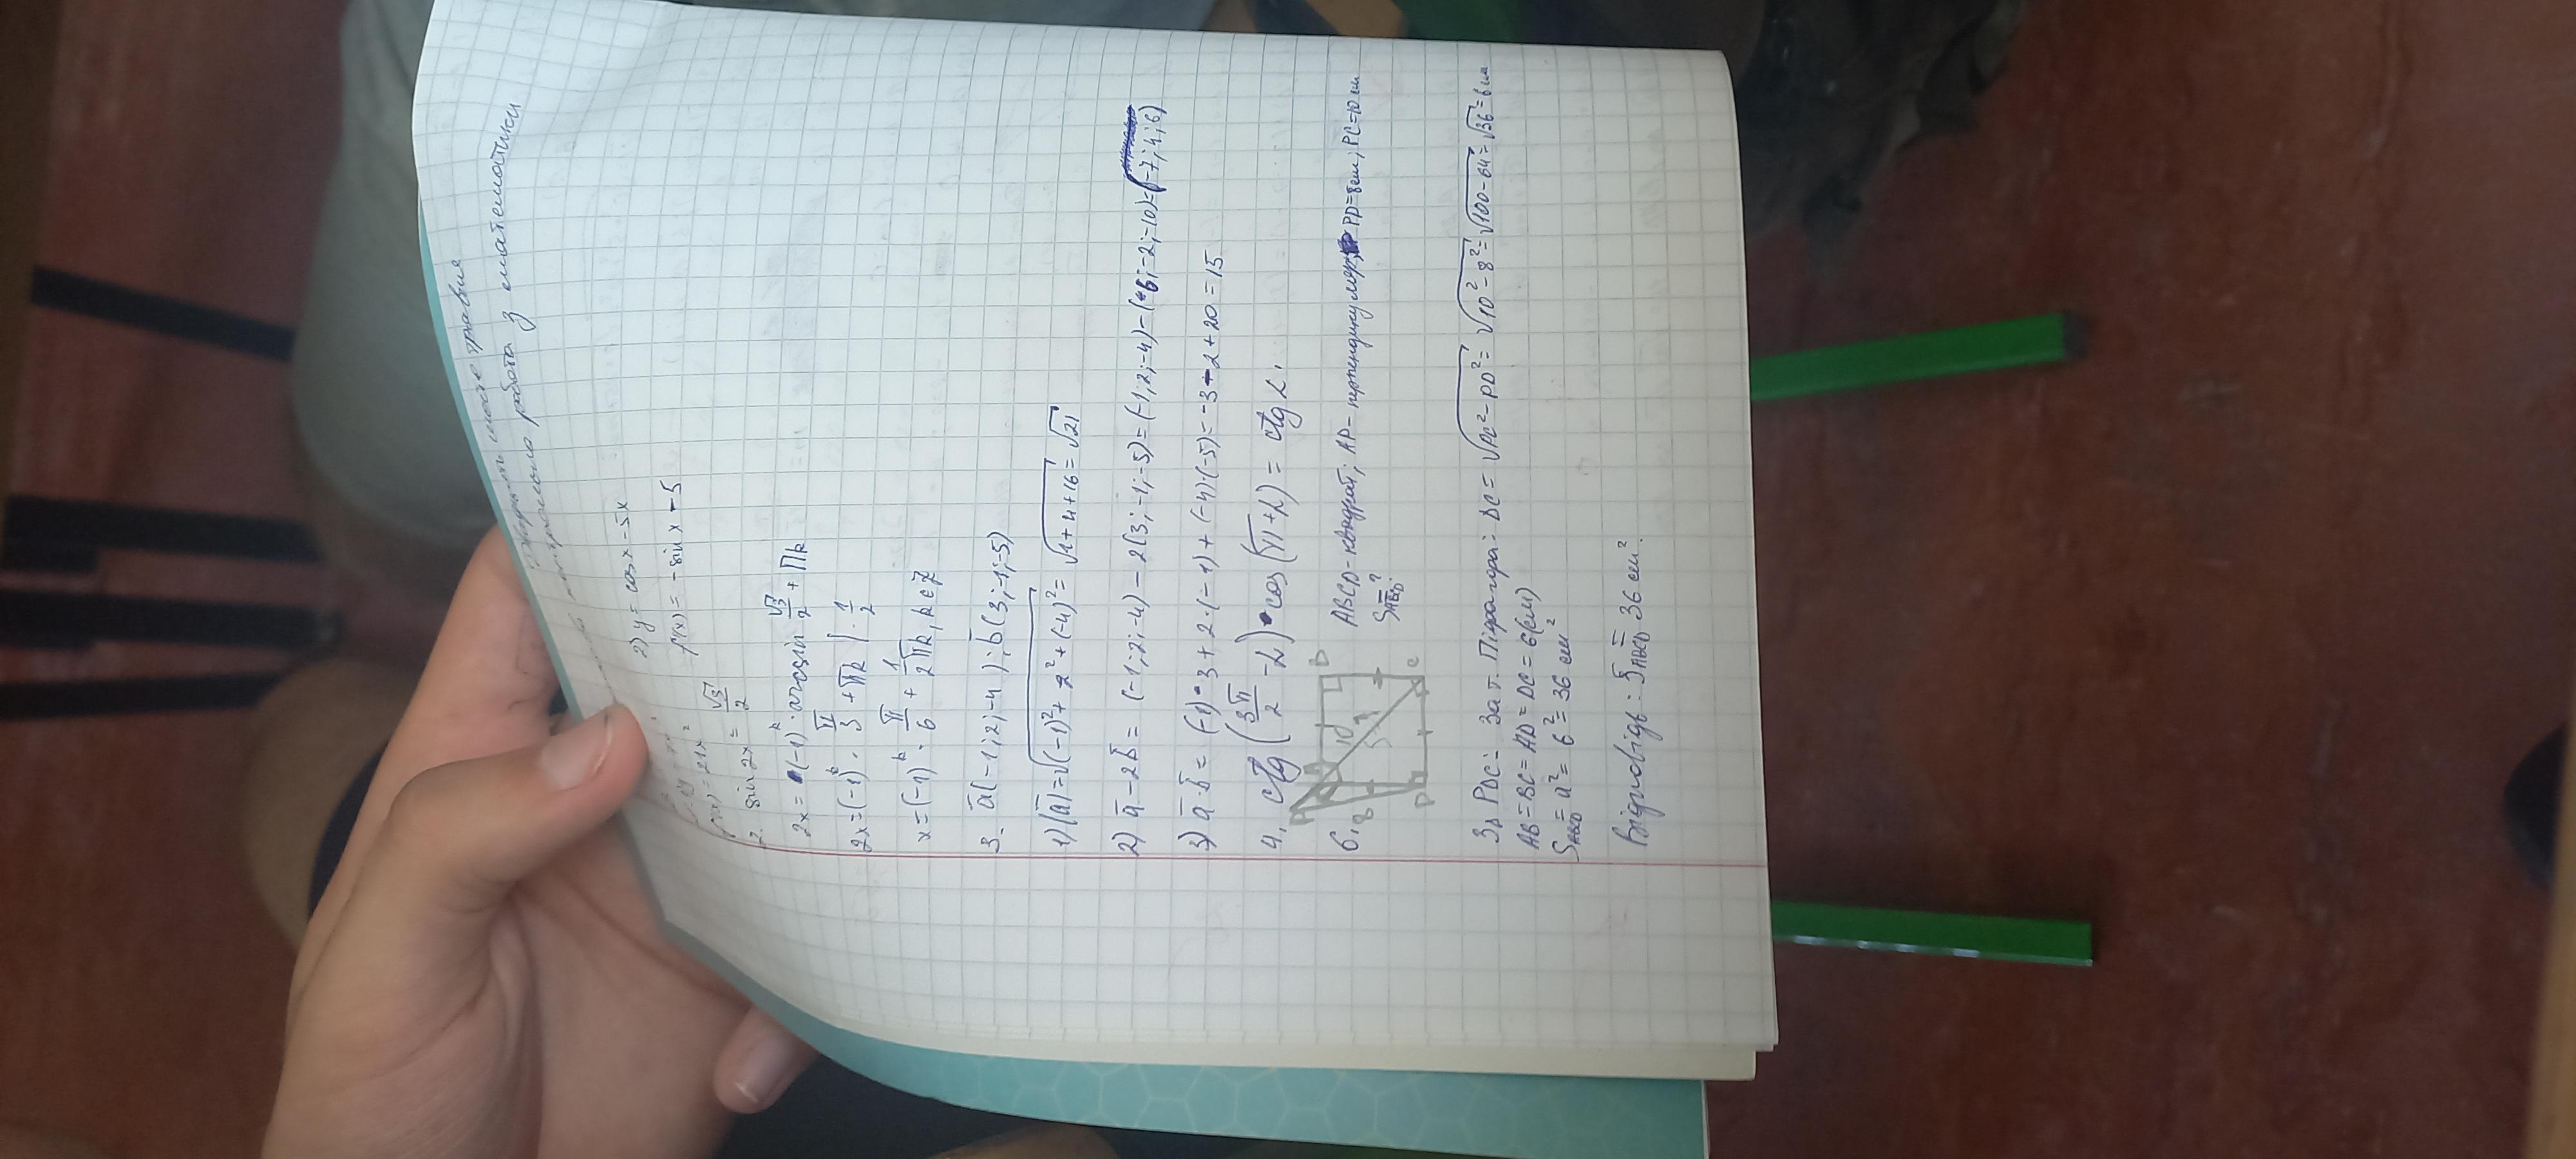 контрольна робота з математики
2) y = cos x - 5x
f'(x) = - sin x - 5
2. sin 2x = √3/2
2x = (-1)^k · arcsin √3/2 + πk
2x = (-1)^k · π/3 + πk | · 1/2
x = (-1)^k · π/6 + 1/2 πk, k ∈ Z
3. a(-1; 2; -4); b(3; -1; -5)
1) |a| = √((-1)² + 2² + (-4)²) = √(1 + 4 + 16) = √21
2) a - 2b = (-1; 2; -4) - 2(3; -1; -5) = (-1; 2; -4) - (6; -2; -10) = (-7; 4; 6)
3) a · b = (-1) · 3 + 2 · (-1) + (-4) · (-5) = -3 - 2 + 20 = 15
4. ctg (3π/2 - α) · cos (π + α) = ctg α.
6. ABCD - квадрат; AP - перпендикуляр; PD = 8 см; PC = 10 см
S ABCD = ?
З Δ PDC: За т. Піфагора: DC = √(PC² - PD²) = √(10² - 8²) = √(100 - 64) = √36 = 6 см
AB = BC = AD = DC = 6 (см)
S ABCD = a² = 6² = 36 см²
Відповідь: S ABCD = 36 см².